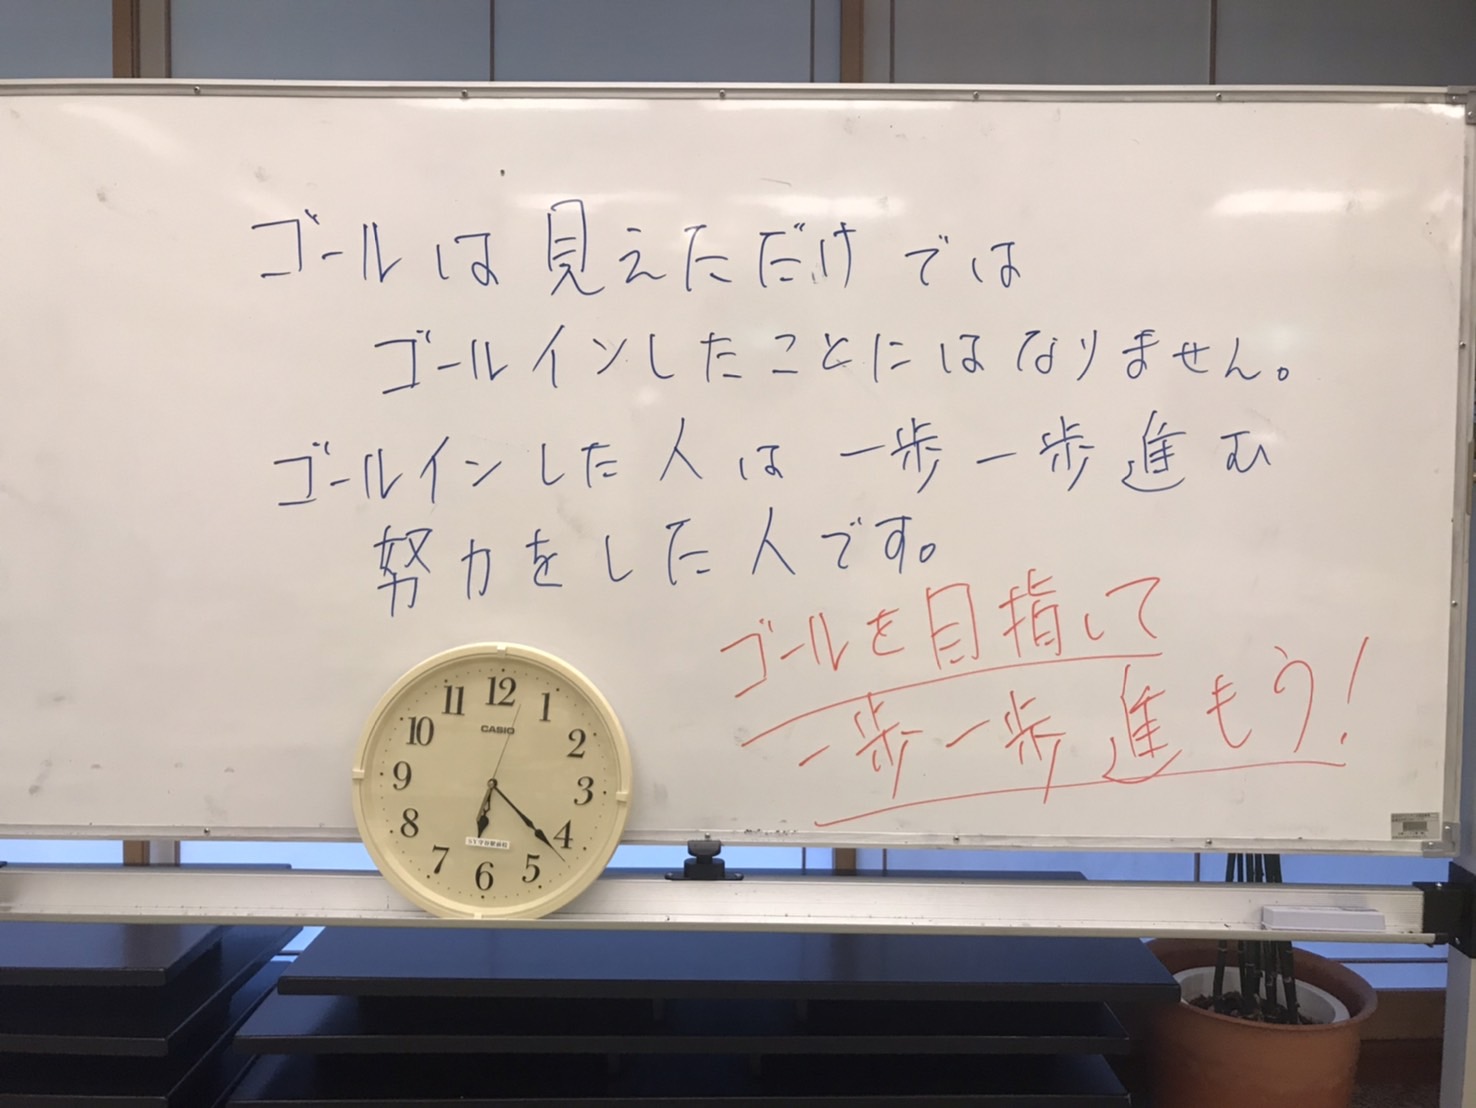 ゴールは見えただけでは
ゴールインしたことにはなりません。
ゴールインした人は一歩一歩進む
努力をした人です。
ゴールを目指して
一歩一歩進もう!
12
1
2
3
4
5
6
7
8
9
10
11
CASIO